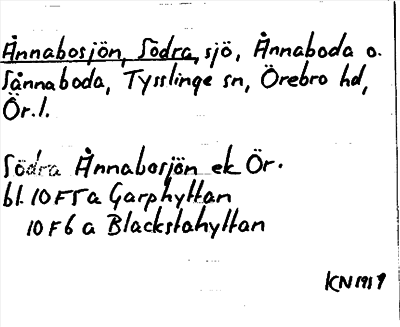 Ånnabosjön, Södra, sjö, Ånnaboda o.
Sånnaboda, Tysslinge sn, Örebro hd,
Ör. l.
Södra Ånnabosjön ek Ör.
bl. 10F5a Garphyttan
10F6a Blackstahyttan